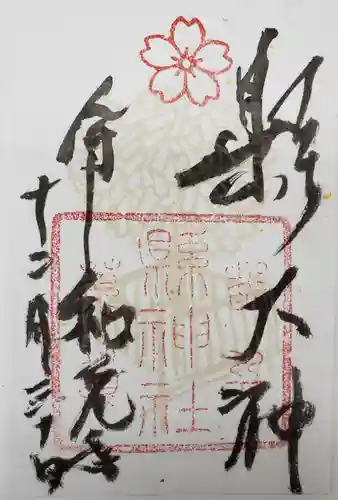 縣大神
令和元
十二月三日
縣神社